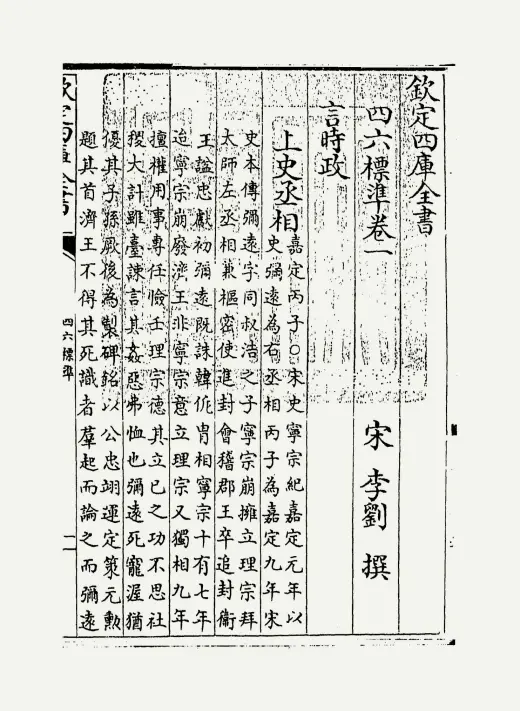 欽定四庫全書
四六標準卷一
宋 李劉 撰
言時政
上史丞相
嘉定丙子○宋史寧宗紀嘉定元年以
史彌遠為右丞相丙子為嘉定九年宋
史本傳彌遠字同叔浩之子寧宗崩擁立理宗拜
太師左丞相兼樞密使進封會稽郡王卒追封衛
王諡忠獻初彌遠既誅韓侂胄相寧宗十有七年
迨寧宗崩廢濟王非寧宗意立理宗又獨相九年
擅權用事專任憸壬理宗德其立己之功不思社
稷大計雖臺諫言其姦惡弗恤也彌遠死寵渥猶
優其子孫厥後為製碑銘以公忠翊運定策元勲
題其首濟王不得其死識者羣起而論之而彌遠
四六標準